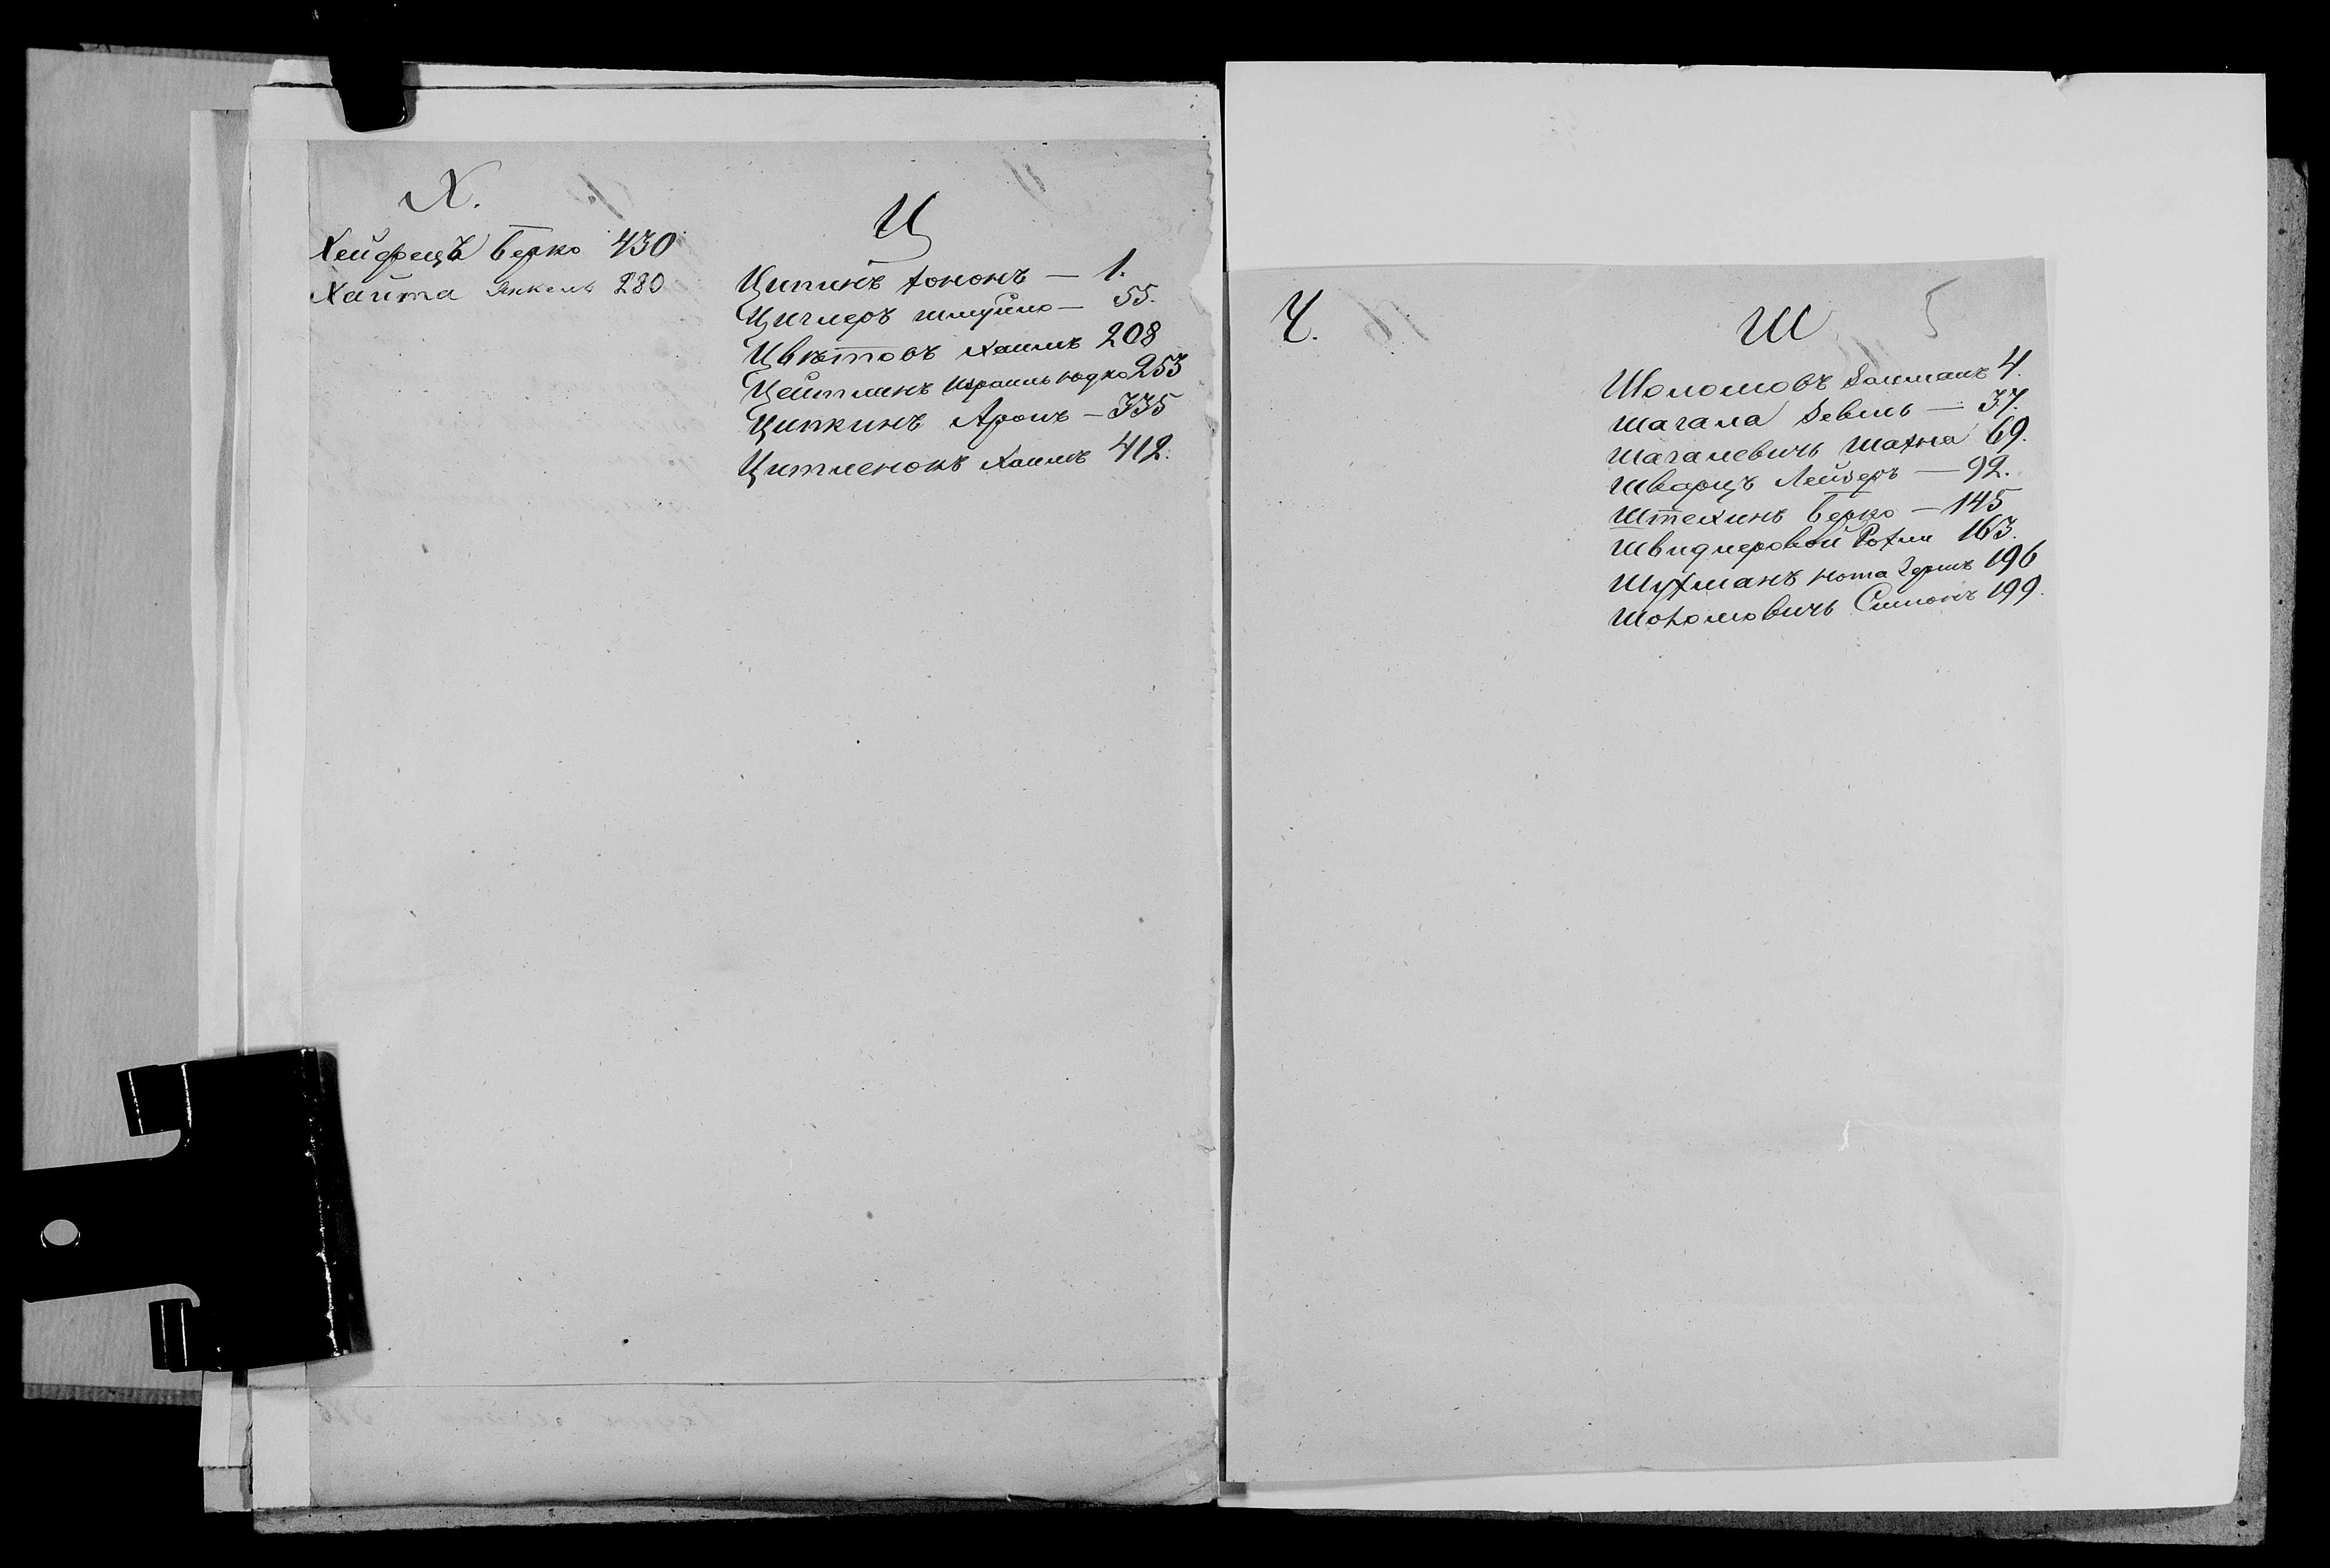 Х.
Хейфецъ Берко 430
Хайта Янкель 280
Ц
Ципинъ Хононъ — 1.
Циглеръ Шмуйло — 55.
Цвѣтовъ Хаимъ 208
Цейтлинъ Израиль Юдко 253
Ципкинъ Аронъ — 335
Цитленокъ Хаимъ 412.
Ч.
Ш
5
Шоломовъ Залманъ 4.
Шагала Зевль — 37.
Шагалевичъ Шахна 69.
Шварцъ Лейзеръ — 92.
Штехинъ Берко — 145
Швидлеровой Рохли 163.
Шухманъ Нота Гершъ 196
Шоломовичъ Симонъ 199.